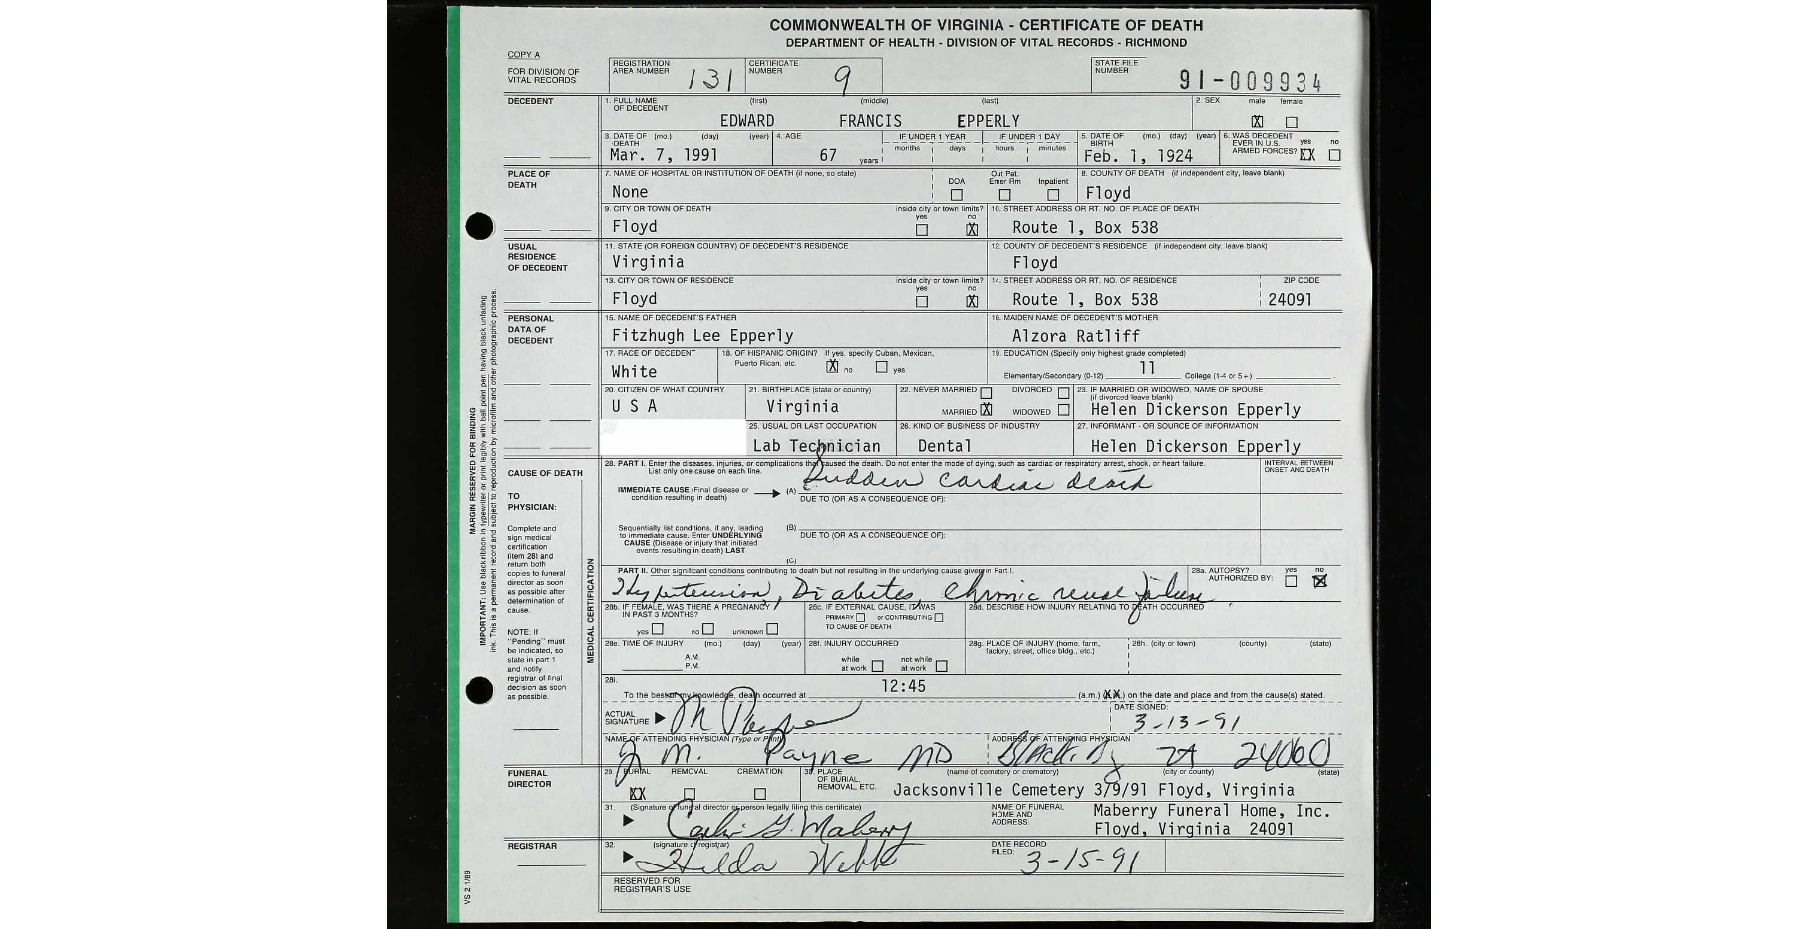 COMMONWEALTH OF VIRGINIA - CERTIFICATE OF DEATH
DEPARTMENT OF HEALTH - DIVISION OF VITAL RECORDS - RICHMOND
COPY A
FOR DIVISION OF VITAL RECORDS
REGISTRATION AREA NUMBER 131 CERTIFICATE NUMBER 9 STATE FILE NUMBER 91-009934
DECEDENT
1. FULL NAME OF DECEDENT (first) (middle) (last) 2. SEX male female
EDWARD FRANCIS EPPERLY X
3. DATE OF DEATH (mo.) (day) (year) 4. AGE IF UNDER 1 YEAR IF UNDER 1 DAY 5. DATE OF BIRTH (mo.) (day) (year) 6. WAS DECEDENT EVER IN U.S. ARMED FORCES? yes no
Mar. 7, 1991 67 years months days hours minutes Feb. 1, 1924 XX
PLACE OF DEATH
7. NAME OF HOSPITAL OR INSTITUTION OF DEATH (if none, so state) DOA Out Pat. Emer Rm Inpatient 8. COUNTY OF DEATH (if independent city, leave blank)
None Floyd
9. CITY OR TOWN OF DEATH inside city or town limits? yes no 10. STREET ADDRESS OR RT. NO. OF PLACE OF DEATH
Floyd X Route 1, Box 538
USUAL RESIDENCE OF DECEDENT
11. STATE (OR FOREIGN COUNTRY) OF DECEDENT'S RESIDENCE 12. COUNTY OF DECEDENT'S RESIDENCE (if independent city, leave blank)
Virginia Floyd
13. CITY OR TOWN OF RESIDENCE inside city or town limits? yes no 14. STREET ADDRESS OR RT. NO. OF RESIDENCE ZIP CODE
Floyd X Route 1, Box 538 24091
PERSONAL DATA OF DECEDENT
15. NAME OF DECEDENT'S FATHER 16. MAIDEN NAME OF DECEDENT'S MOTHER
Fitzhugh Lee Epperly Alzora Ratliff
17. RACE OF DECEDENT 18. OF HISPANIC ORIGIN? If yes, specify Cuban, Mexican, Puerto Rican, etc. X no yes 19. EDUCATION (Specify only highest grade completed)
White Elementary/Secondary (0-12) 11 College (1-4 or 5+)
20. CITIZEN OF WHAT COUNTRY 21. BIRTHPLACE (state or country) 22. NEVER MARRIED DIVORCED 23. IF MARRIED OR WIDOWED, NAME OF SPOUSE (if divorced leave blank)
U S A Virginia MARRIED X WIDOWED Helen Dickerson Epperly
25. USUAL OR LAST OCCUPATION 26. KIND OF BUSINESS OF INDUSTRY 27. INFORMANT - OR SOURCE OF INFORMATION
Lab Technician Dental Helen Dickerson Epperly
CAUSE OF DEATH
TO PHYSICIAN:
Complete and sign medical certification (item 28) and return both copies to funeral director as soon as possible after determination of cause.
NOTE: If "Pending" must be indicated, so state in part 1 and notify registrar of final decision as soon as possible.
MEDICAL CERTIFICATION
28. PART I. Enter the diseases, injuries, or complications that caused the death. Do not enter the mode of dying, such as cardiac or respiratory arrest, shock, or heart failure. List only one cause on each line. INTERVAL BETWEEN ONSET AND DEATH
IMMEDIATE CAUSE (Final disease or condition resulting in death) (A) Sudden cardiac death
DUE TO (OR AS A CONSEQUENCE OF):
Sequentially list conditions, if any, leading to immediate cause. Enter UNDERLYING CAUSE (Disease or injury that initiated events resulting in death) LAST (B)
DUE TO (OR AS A CONSEQUENCE OF):
(C)
PART II. Other significant conditions contributing to death but not resulting in the underlying cause given in Part I. 28a. AUTOPSY? AUTHORIZED BY: yes no X
Hypertension, Diabetes, Chronic renal failure
28b. IF FEMALE, WAS THERE A PREGNANCY IN PAST 3 MONTHS? yes no unknown 28c. IF EXTERNAL CAUSE, IT WAS PRIMARY or CONTRIBUTING TO CAUSE OF DEATH 28d. DESCRIBE HOW INJURY RELATING TO DEATH OCCURRED
28e. TIME OF INJURY (mo.) (day) (year) A.M. P.M. 28f. INJURY OCCURRED while at work not while at work 28g. PLACE OF INJURY (home, farm, factory, street, office bldg., etc.) 28h. (city or town) (county) (state)
28i. To the best of my knowledge, death occurred at 12:45 (a.m.) (XX) on the date and place and from the cause(s) stated.
ACTUAL SIGNATURE M Payne DATE SIGNED: 3-13-91
NAME OF ATTENDING PHYSICIAN (Type or Print) ADDRESS OF ATTENDING PHYSICIAN
J M. Payne MD VA 24060
FUNERAL DIRECTOR
29. BURIAL REMOVAL CREMATION 30. PLACE OF BURIAL, REMOVAL, ETC. (name of cemetery or crematory) (city or county) (state)
XX Jacksonville Cemetery 3/9/91 Floyd, Virginia
31. (Signature of funeral director or person legally filing this certificate) NAME OF FUNERAL HOME AND ADDRESS: Maberry Funeral Home, Inc.
G. Maberry Floyd, Virginia 24091
REGISTRAR
32. (signature of registrar) DATE RECORD FILED:
Hilda Webb 3-15-91
RESERVED FOR REGISTRAR'S USE
MARGIN RESERVED FOR BINDING
IMPORTANT: Use black ribbon in typewriter or print legibly with ball point pen having black unfading ink. This is a permanent record and subject to reproduction by microfilm and other photographic process.
VS 2 1/89